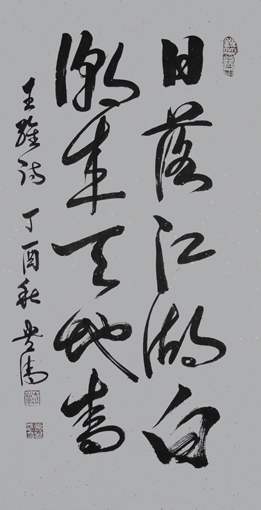 日落江湖白
潮来天地青
王維诗 丁酉秋